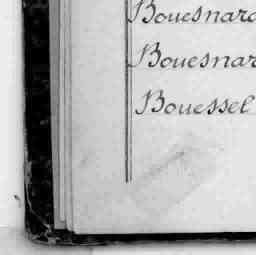 Bouesnard
Bouesnar
Bouessel